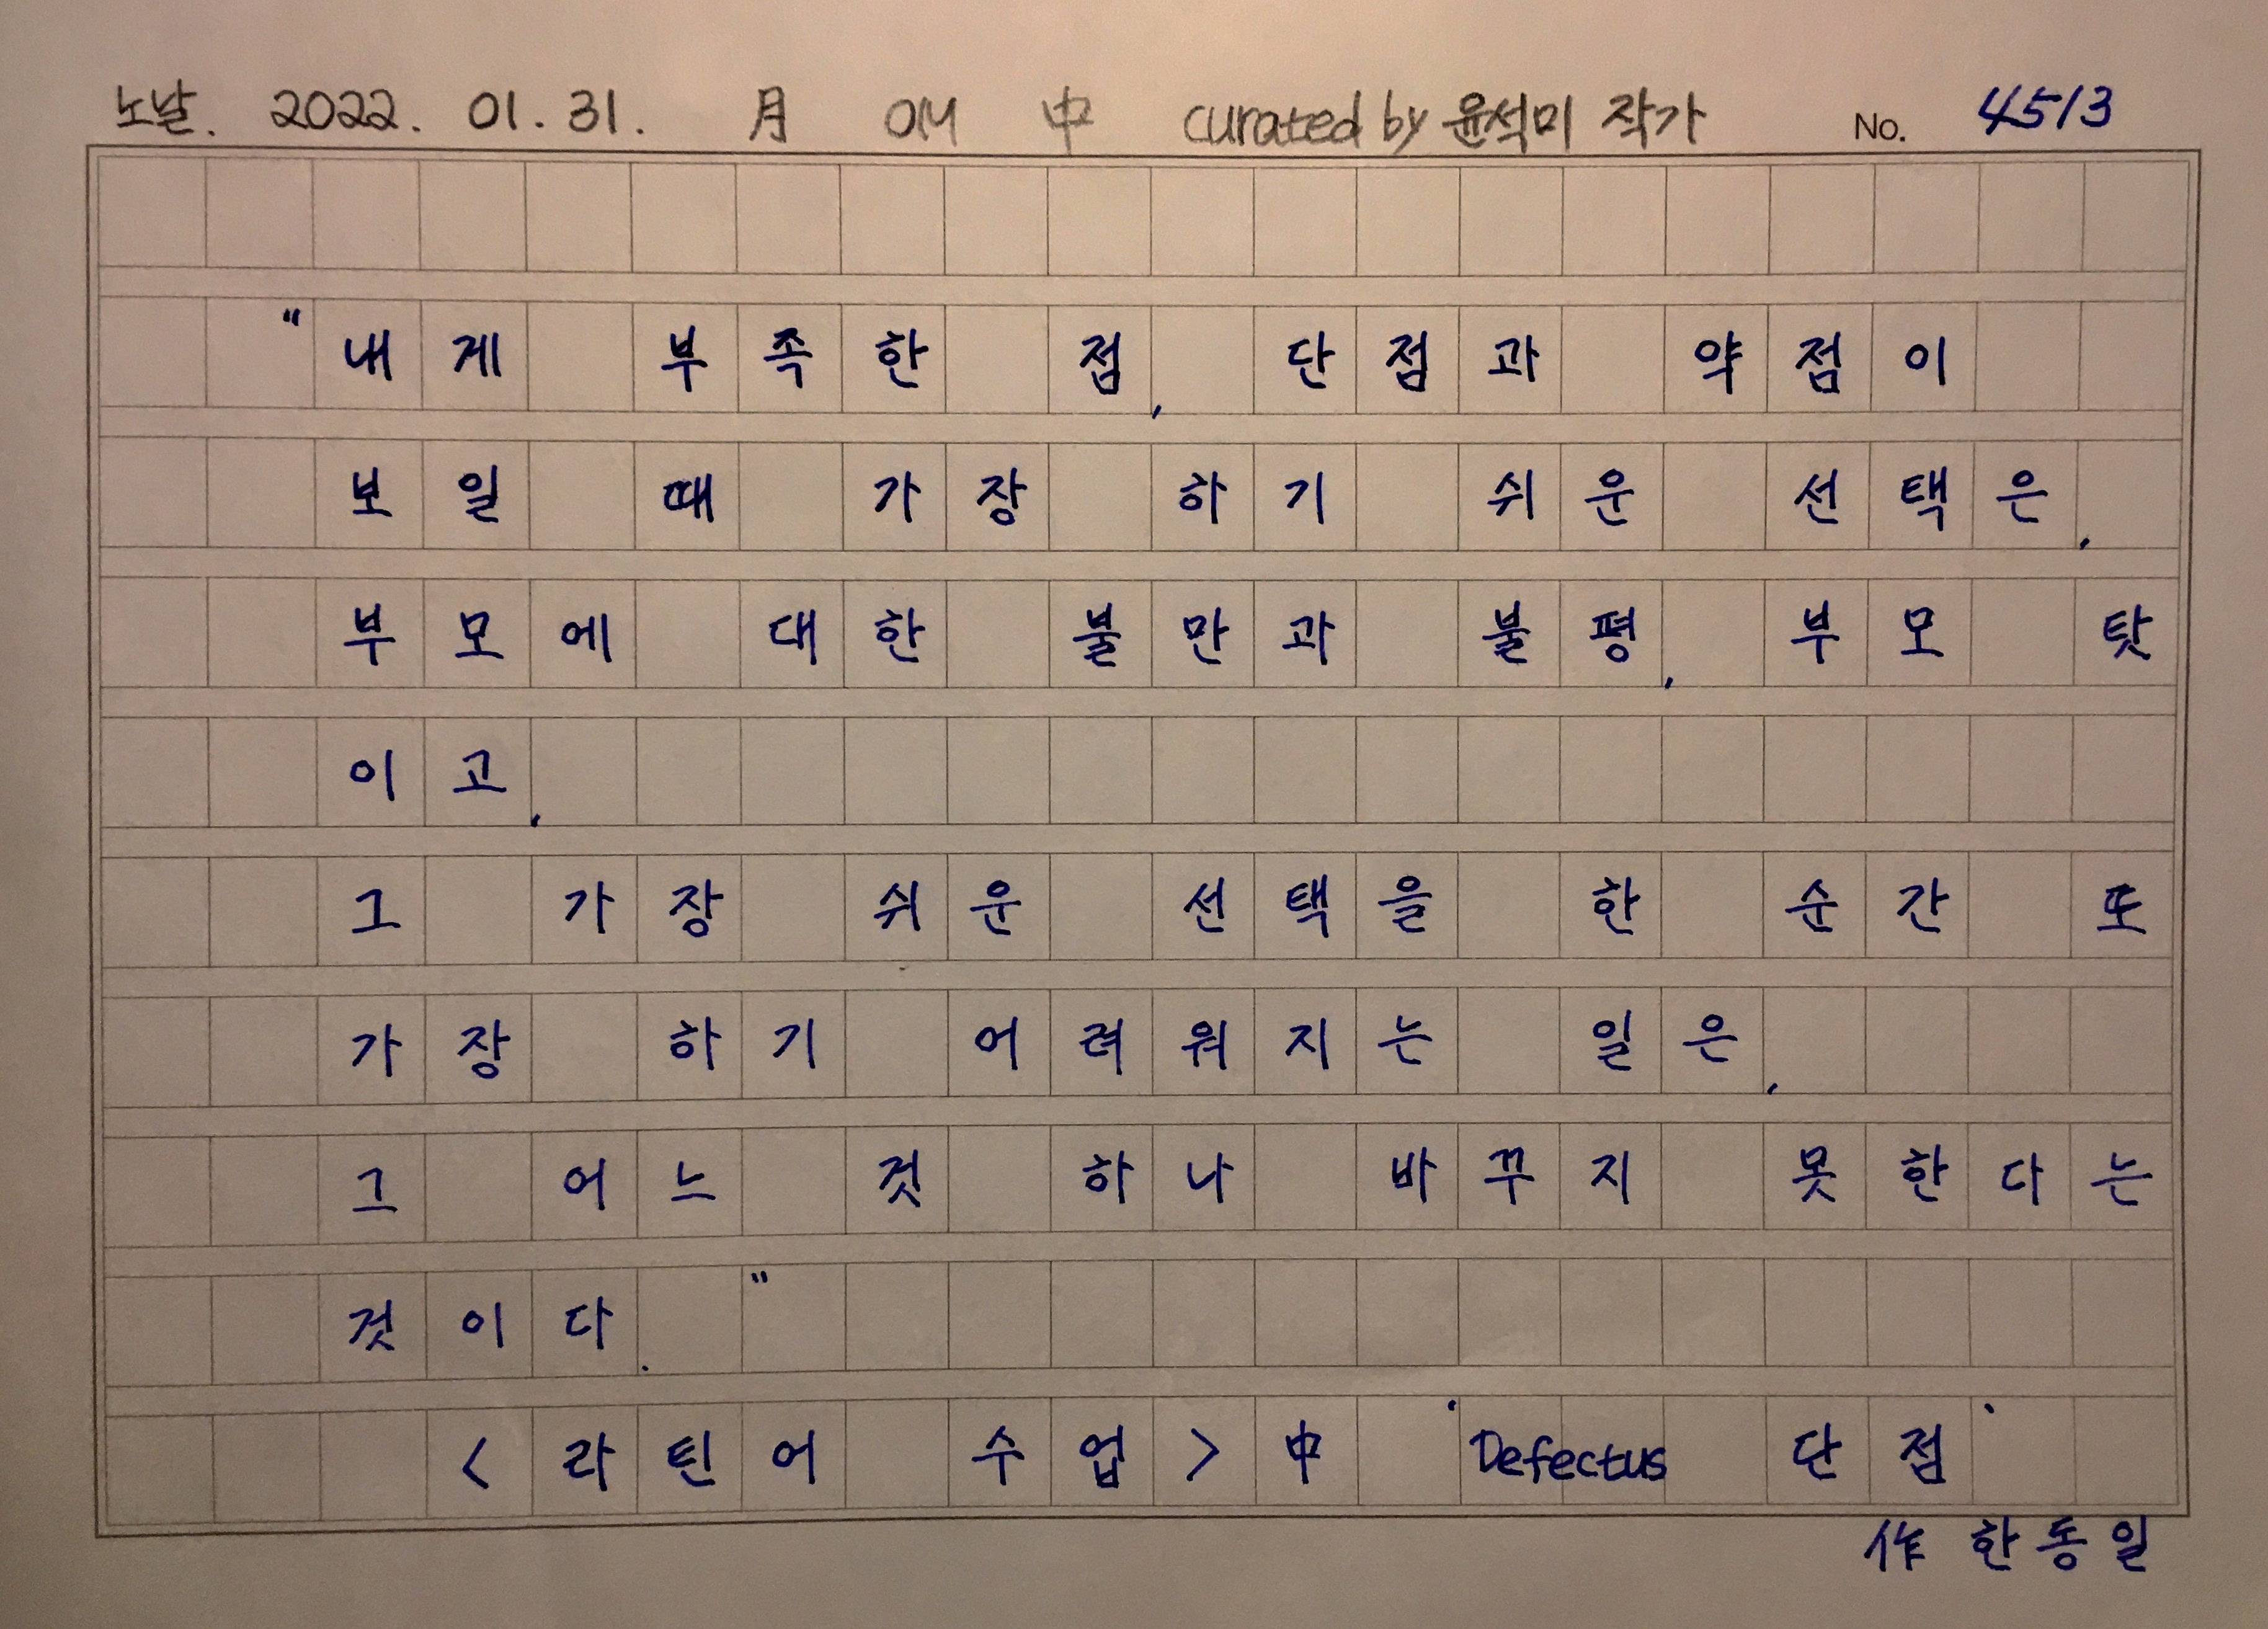 노날. 2022. 01. 31. 月 OM 中 curated by 윤석미 작가 No. 4513
"내게 부족한 점, 단점과 약점이
보일 때 가장 하기 쉬운 선택은,
부모에 대한 불만과 불평, 부모 탓
이고,
그 가장 쉬운 선택을 한 순간 또
가장 하기 어려워지는 일은,
그 어느 것 하나 바꾸지 못한다는
것이다."
<라틴어 수업> 中 'Defectus 단점'
作 한동일